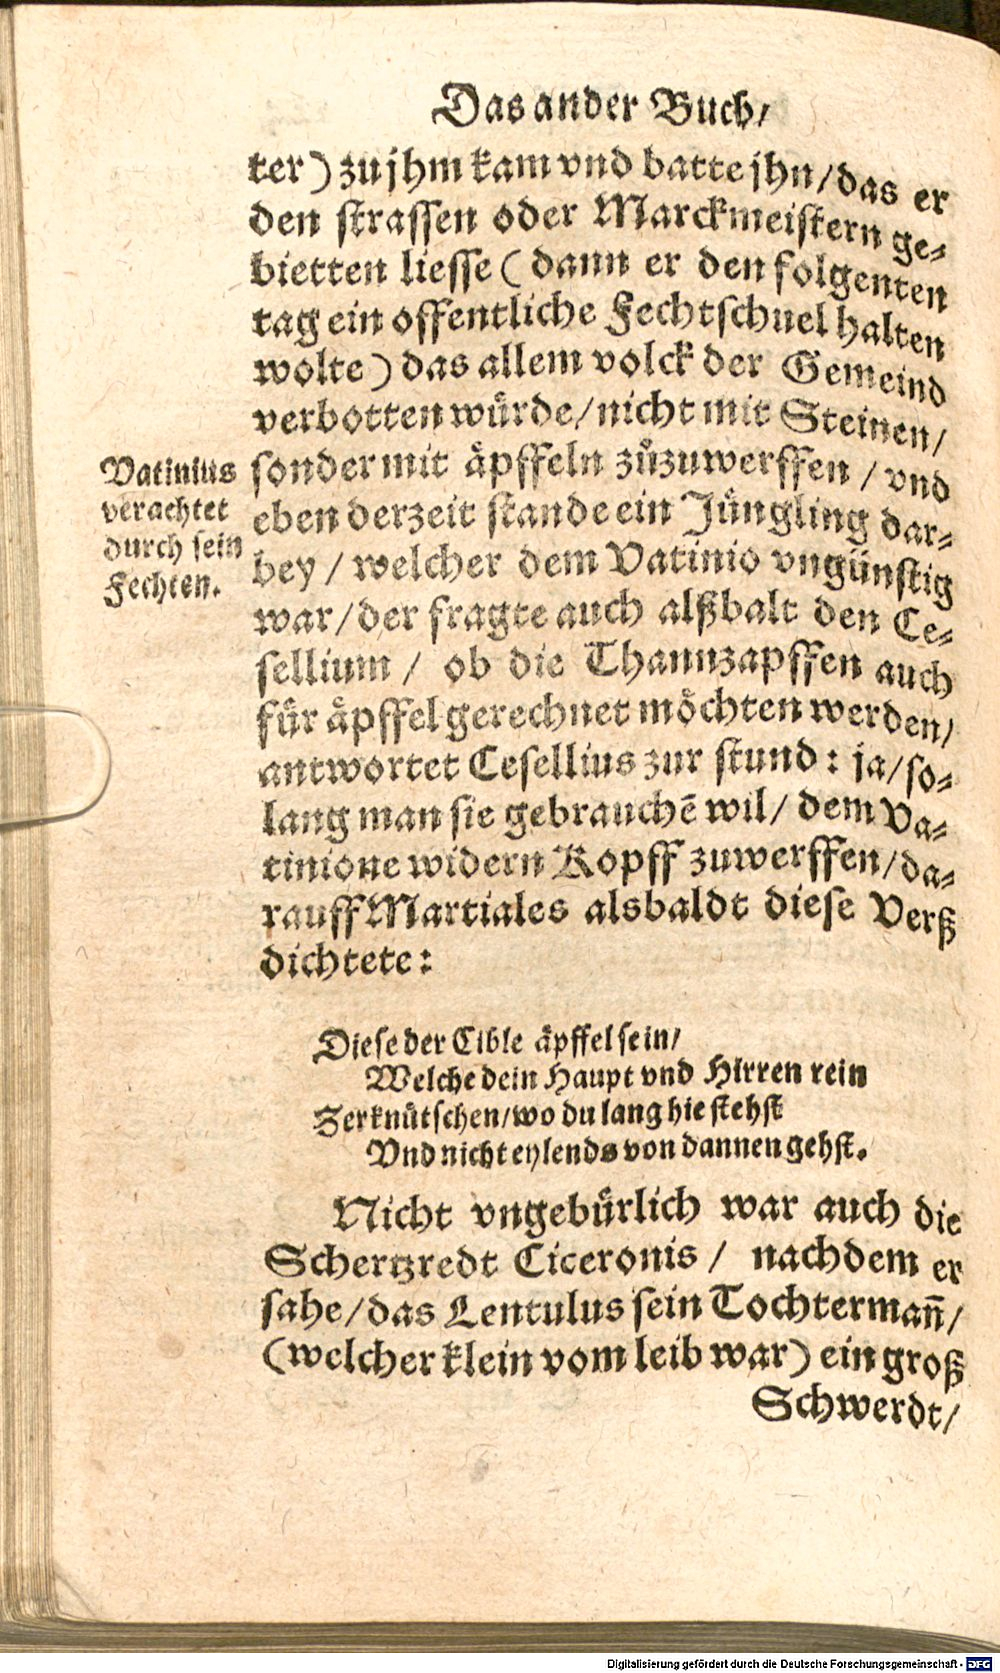 Das ander Buch/
ter) zu jhm kam vnd batte jhn/das er
den strassen oder Marckmeistern ge-
bietten liesse (dann er den folgenten
tag ein offentliche Fechtschuel halten
wolte) das allem volck der Gemeind
verbotten wůrde/nicht mit Steinen/
sonder mit åpffeln zůzuwerffen / vnd
eben der zeit stande ein Jůngling dar-
bey / welcher dem Vatinio vngünstig
war/der fragte auch alßbalt den Ce-
sellium / ob die Thannzapffen auch
fůr åpffel gerechnet mőchten werden/
antwortet Cesellius zur stund: ja/so-
lang man sie gebrauchē wil/ dem Va-
tinione widern Kopff zuwerffen/da-
rauff Martiales alsbaldt diese Verß
dichtete:
Vatinius
verachtet
durch sein
Fechten.
Diese der Cible åpffel sein/
Welche dein Haupt vnd Hirren rein
Zerknůtschen/wo du lang hie stehst
Vnd nicht eylends von dannen gehst.
Nicht vngebůrlich war auch die
Schertzredt Ciceronis / nachdem er
sahe/das Lentulus sein Tochtermañ/
(welcher klein vom leib war) ein groß
Schwerdt/
Digitalisierung gefördert durch die Deutsche Forschungsgemeinschaft - DFG